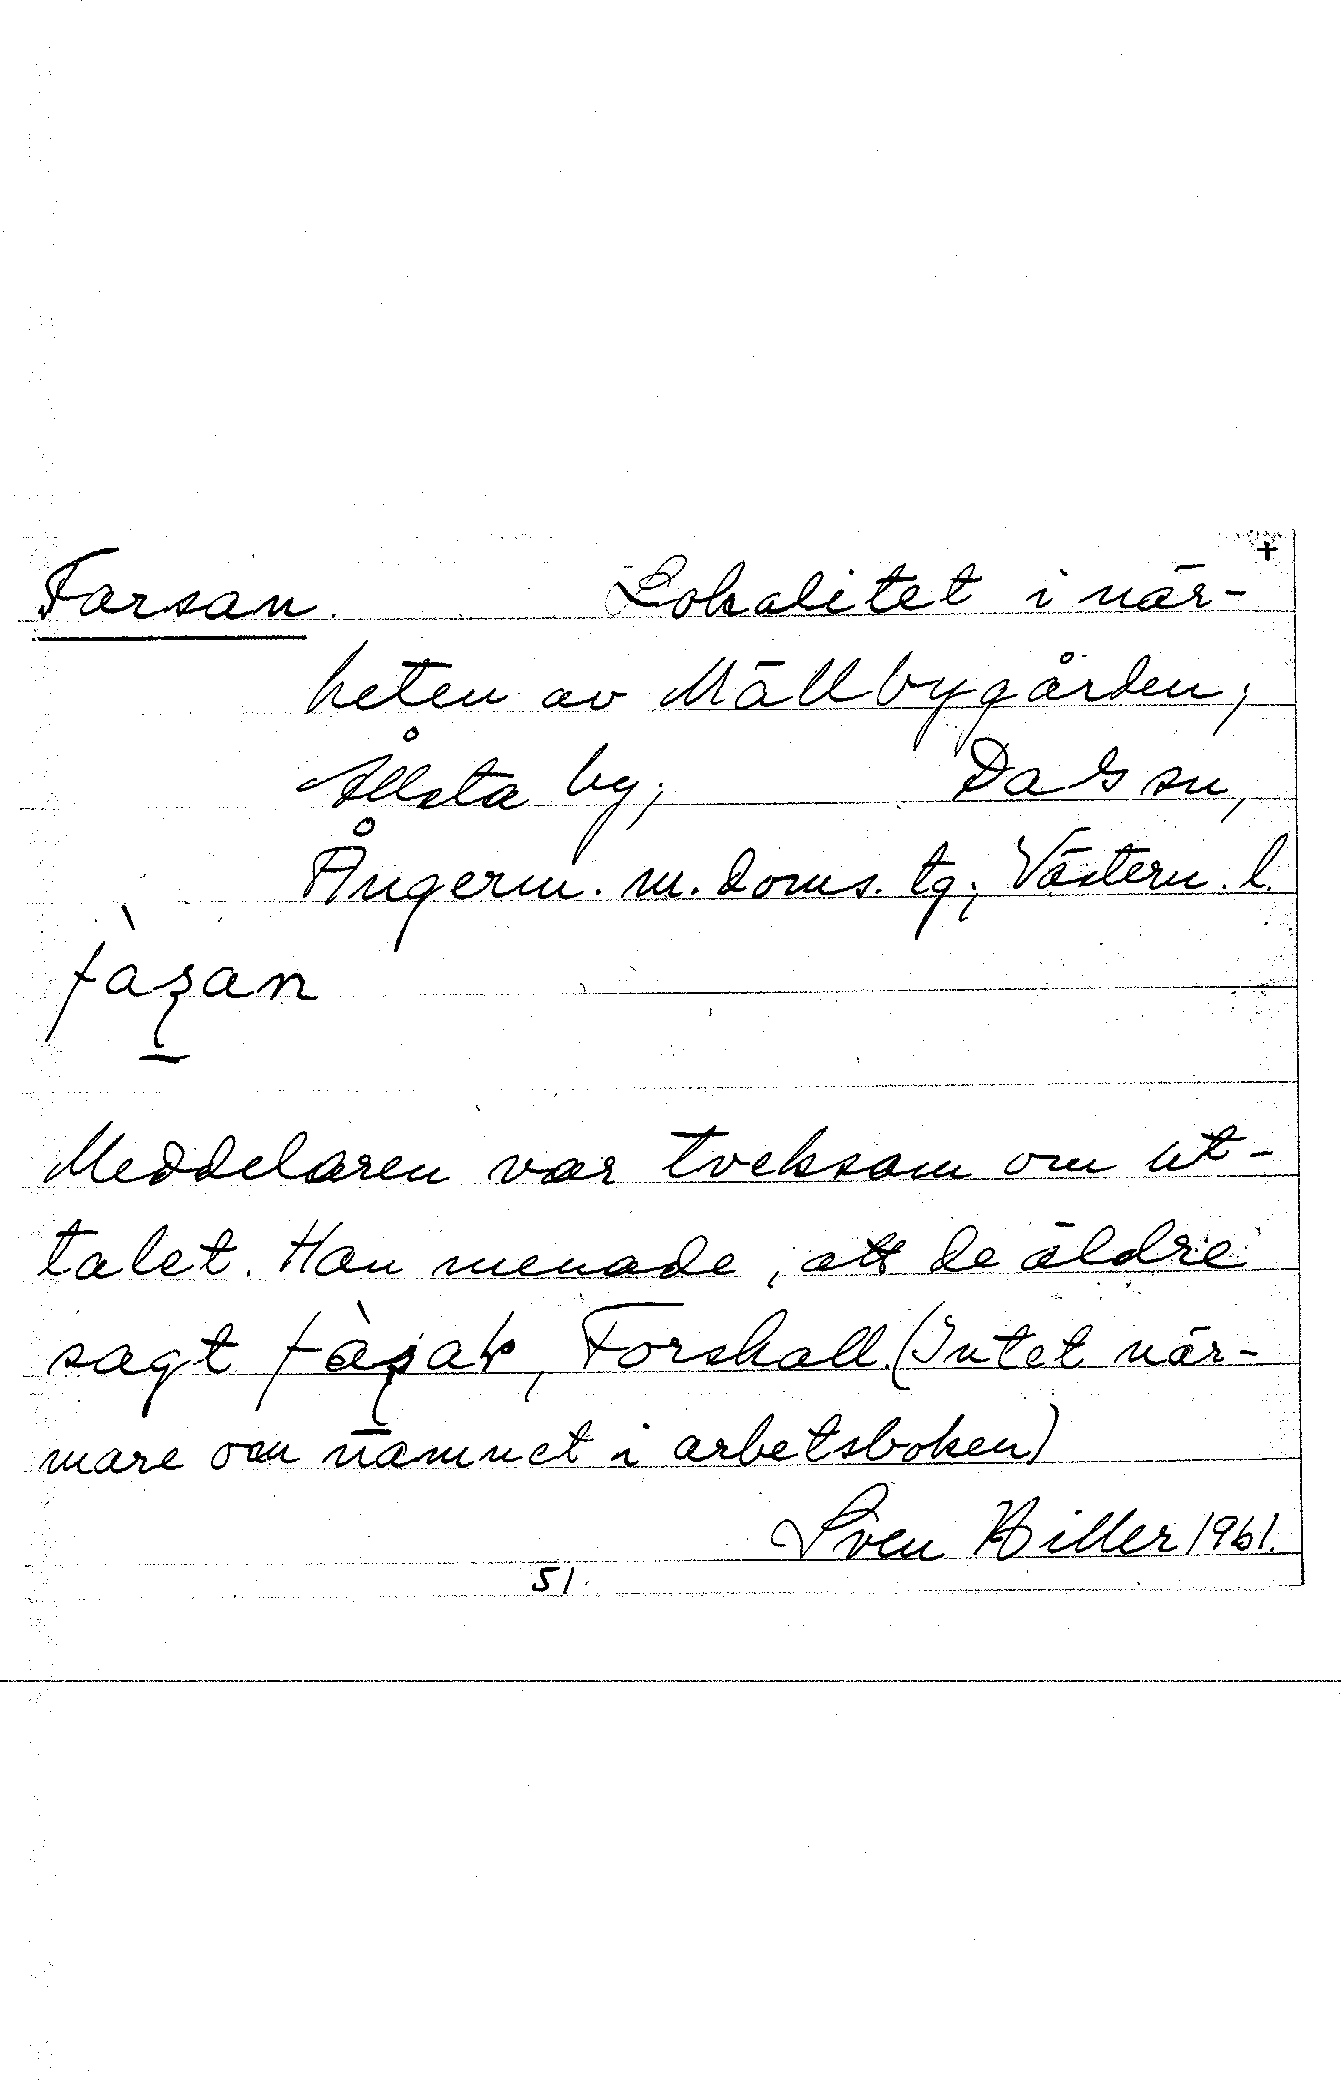 +
Farsan. Lokalitet i när-
heten av Mällbygården,
Ållsta by, Dals sn,
Ångerm. m. doms. tg, Västern. l.
fàȥan
Meddelaren var tveksam om ut-
talet. Han menade, att de äldre
sagt Forskall. (Intet när-
mare om namnet i arbetsboken)
Sven Hiller 1961.
51.